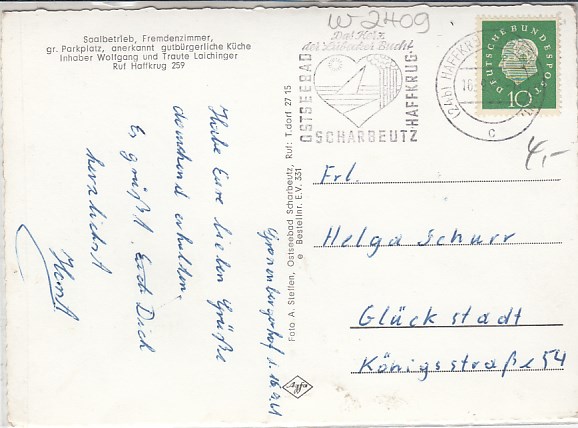 W 2409
Saalbetrieb, Fremdenzimmer,
gr. Parkplatz, anerkannt gutbürgerliche Küche
Inhaber Wolfgang und Traute Laichinger
Ruf Haffkrug 259
Das Herz
der Lübecker Bucht
OSTSEEBAD
HAFFKRUG
SCHARBEUTZ
(24b) HAFFKRUG
c
DEUTSCHE BUNDESPOST
10
4,-
Gronenbergerhof d. 16.9.61
Habe Eure lieben Grüße
dankend erhalten.
Es grüßt Dich
herzlichst
Horst
Foto A. Steffen, Ostseebad Scharbeutz, Ruf: T.dorf 27 15
Bestellnr. E.V. 331
Agfa
Frl.
Helga Schurr
Glückstadt
Königsstraße 54